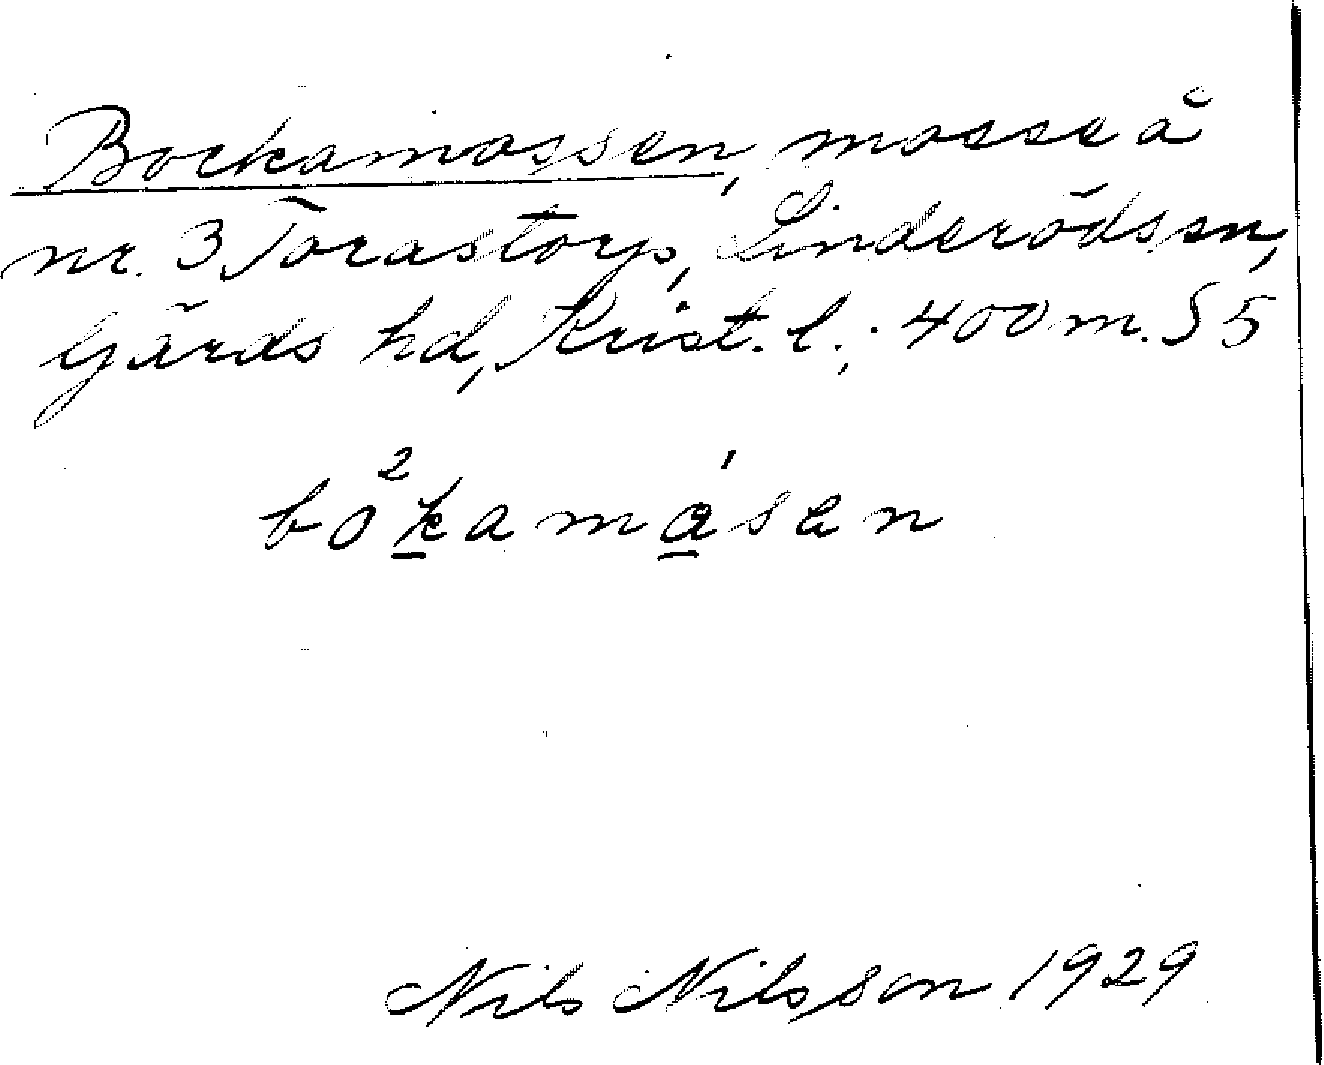 Bockamossen, mosse å
nr. 3 Torastorp, Linderöds sn,
Gärds hd, Krist. l.; 400 m. S 5
bo²kamåsen
Nils Nilsson 1929